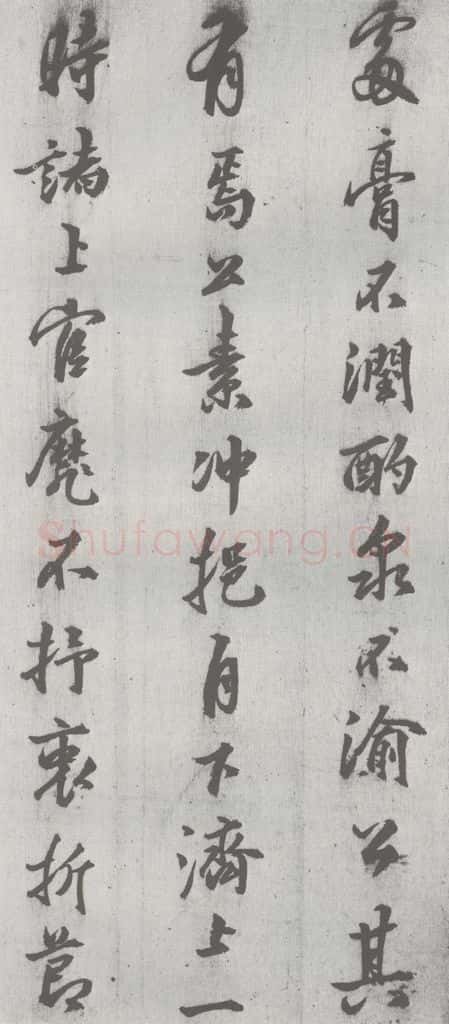 處膏不潤酌泉不渝公其
有焉公素冲挹自下濟上一
時諸上官靡不抒衷折節
Shufawang.CN